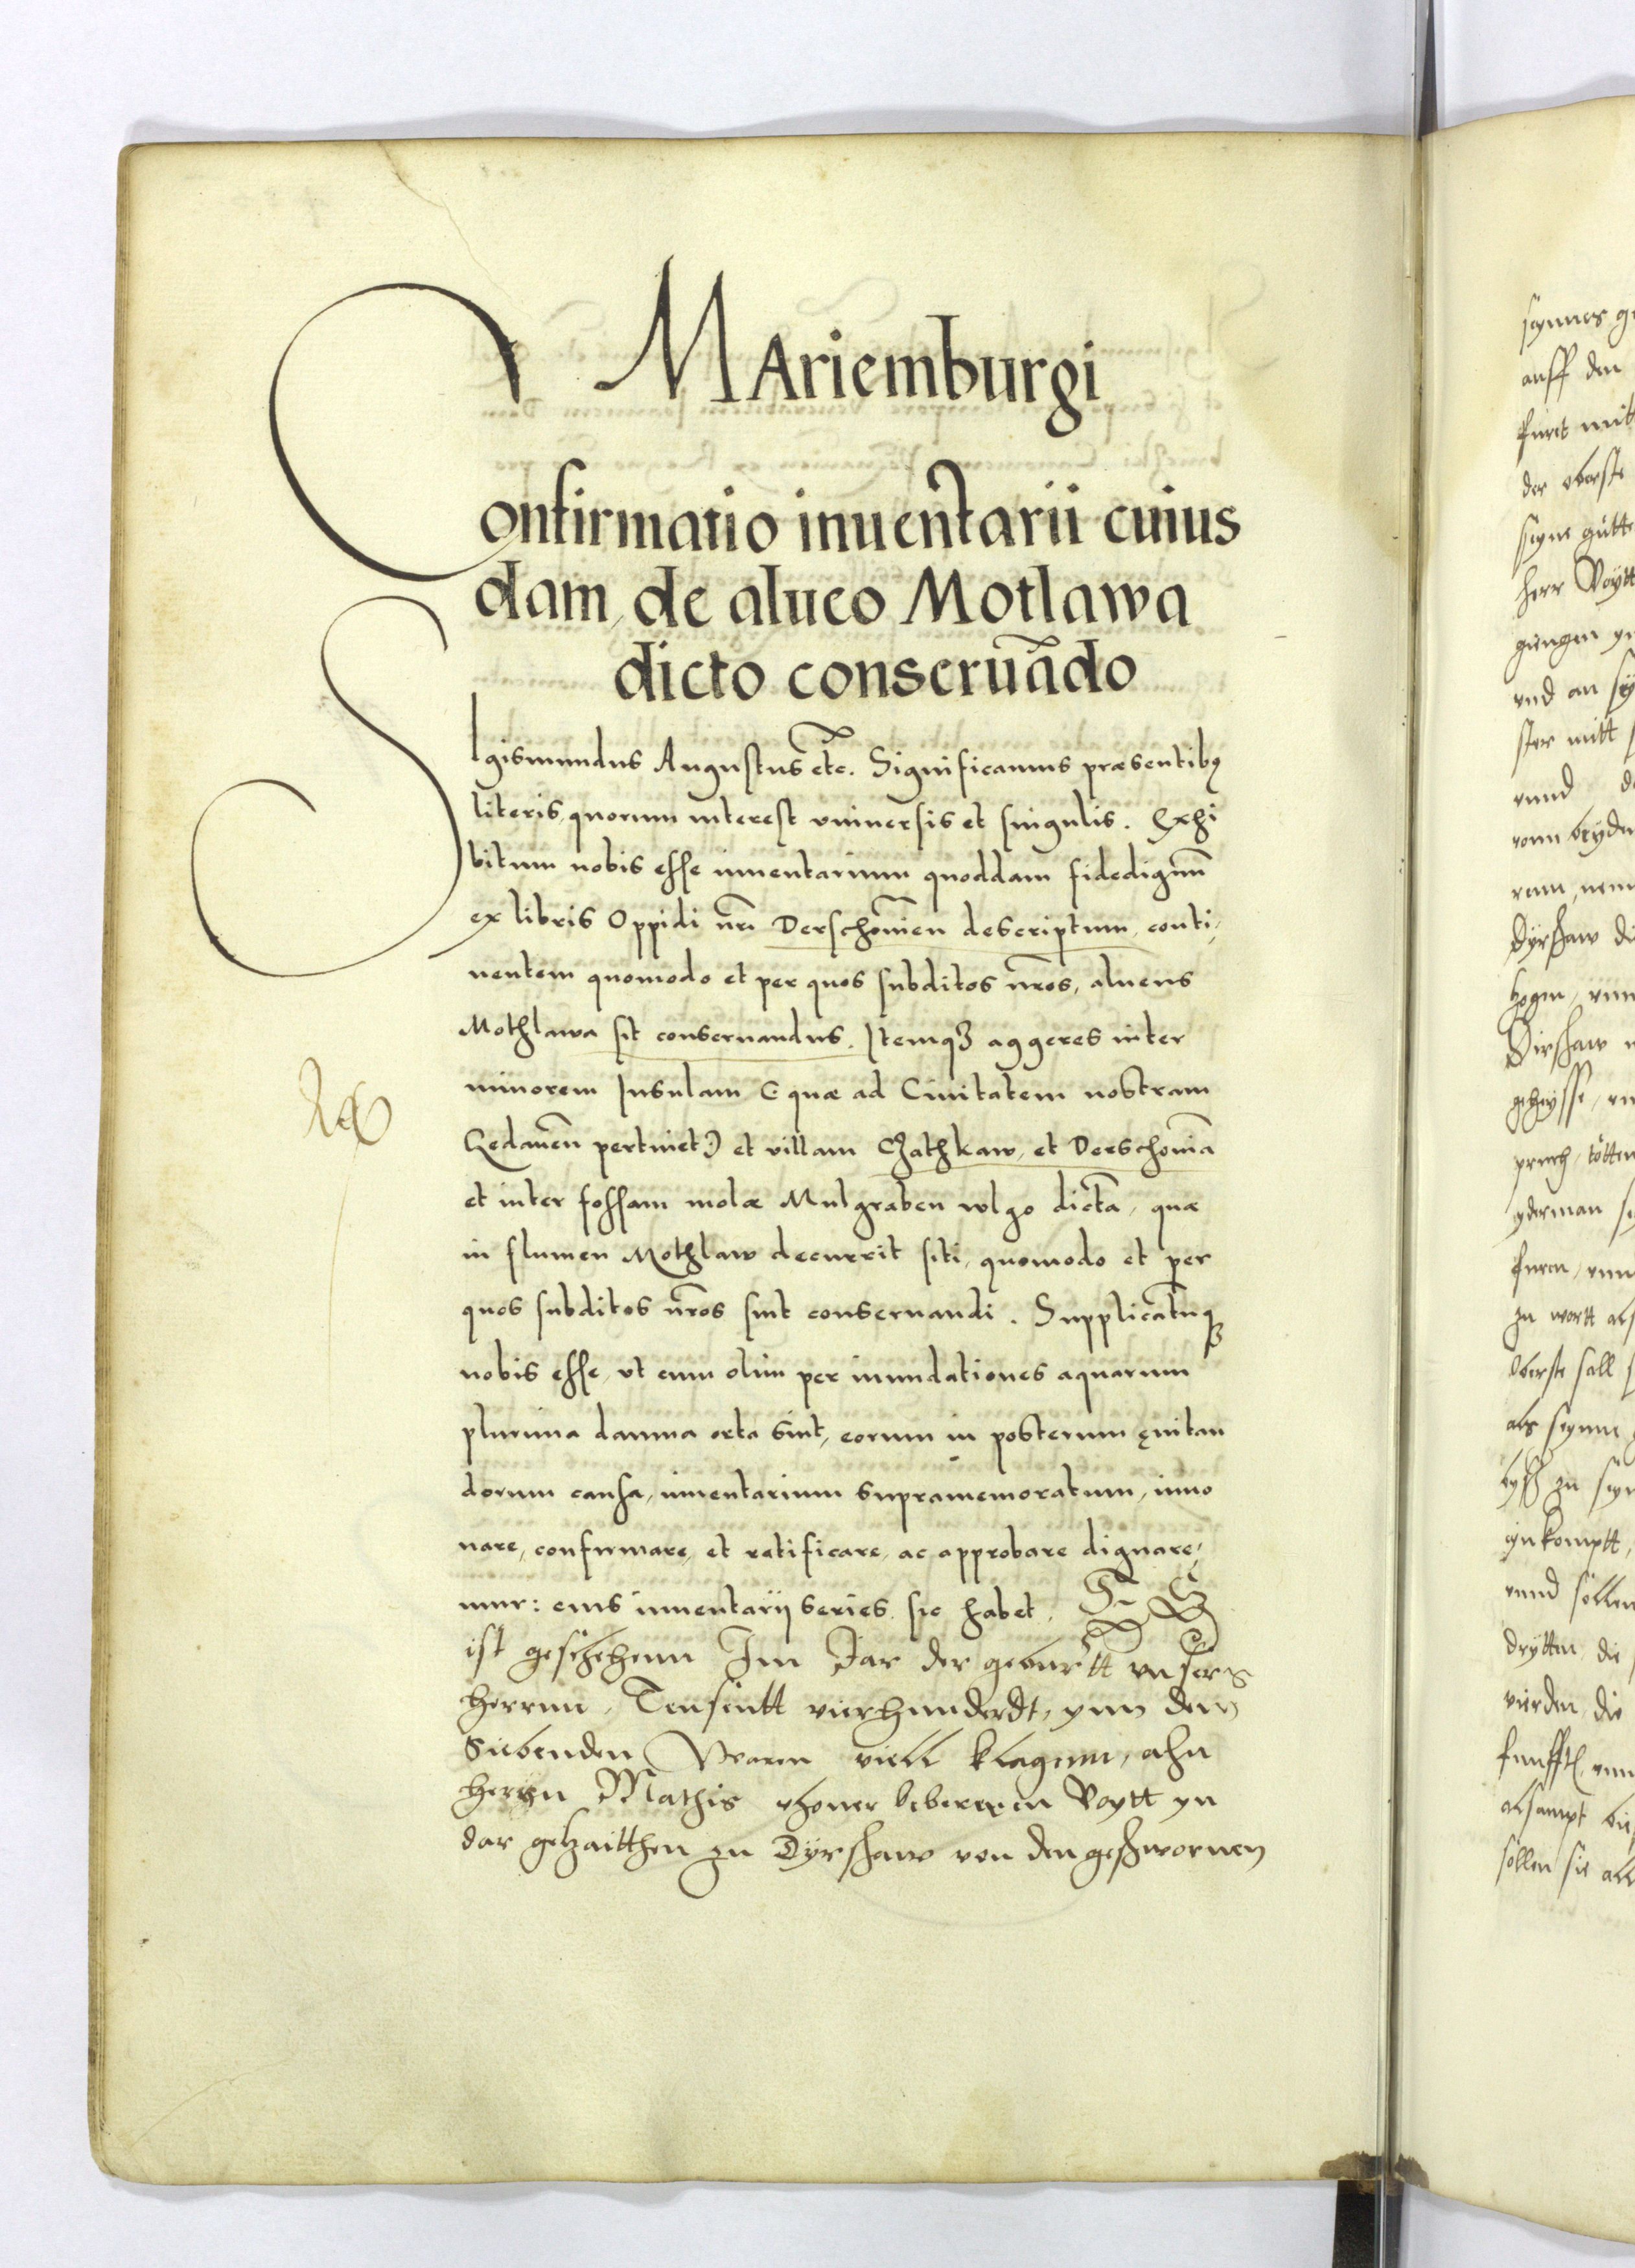 MAriemburgi
Confirmatio inuentarii cuius
dam, de alueo Motlawa
dicto conseruãdo
SIgismundus Augustus etc̃. Significamus præsentibꝫ
literis, quorum interest vniuersis et singulis. Exhi
bitum nobis esse inuentarium quoddam fidedignũ
ex libris Oppidi nrĩ Derschouieñ descriptum, conti,
nentem quomodo et per quos subditos nr̃os, alueus
Mothlawa sit conseruandus. Itemqꝫ aggeres inter
minorem Insulam (quæ ad Ciuitatem nostram
Gedaneñ pertinet) et villam Czathkaw, et Derschouiã
et inter fossam molæ Mulgraben wlgo dictã, quæ
in flumen Mothlaw decurrit siti, quomodo et per
quos subditos nr̃os sint conseruandi. Supplicatũqꝫ
nobis esse, vt cum olim per inundationes aquarum
plurima damna orta sint, eorum in posterum euitan
dorum causa, inuentarium supramemoratum, inno
uare, confirmare, et ratificare, ac approbare dignare,
mur: cuius inuentarij series, sic habet. Es
ist geschehenn Im Jar der geburtt vnsers
herrnn, Tausentt vierhunderdt, ynn dem
Siebenden Waren viell klagenn, ahn
herrn Mathis Voytt yn
der getzaitthen zu Dyrschaw von den geschwornen
seynes
auff den
furet mitt
der oberste
seyne gutte
herr Voytt
gingen
vnd an
ster mitt
vnnd
vonn beyden
Dyrschaw die
Dirschaw
yderman
zu wortt
Oberste sall
als seynn
eynkomptt,
vnnd sollen
drytten die
vierden die
sollen sie